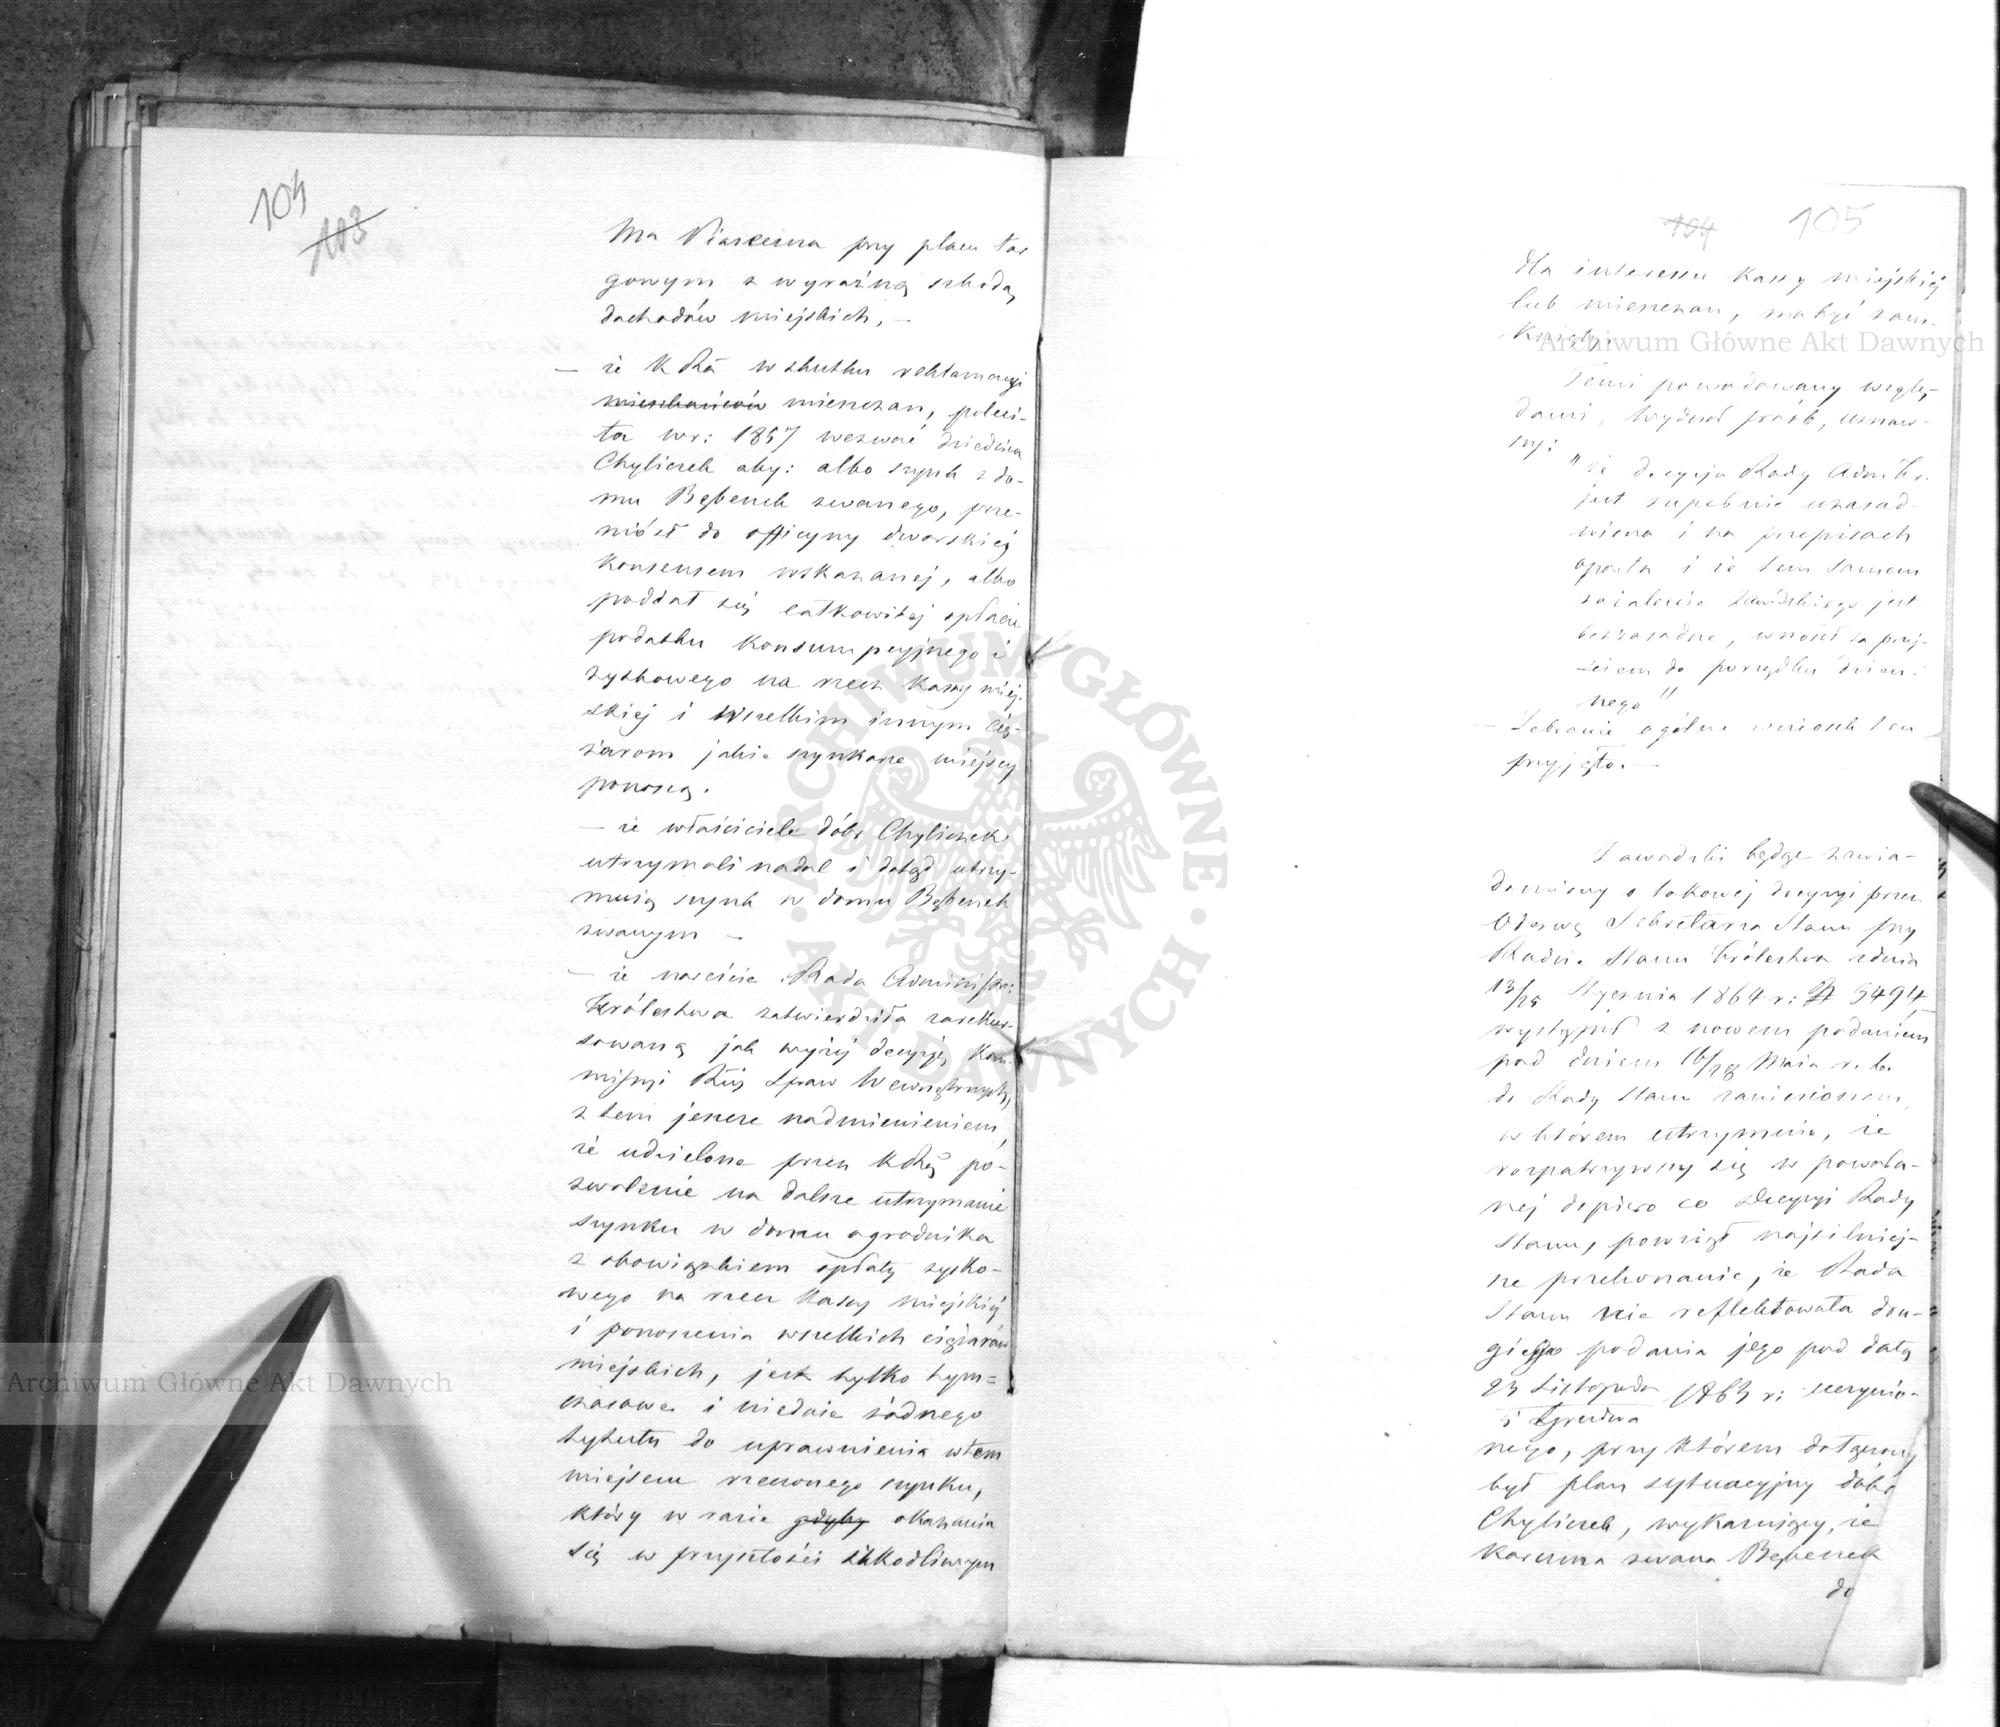 104
103
Ma Piaseczna przy placu tar
gowym z wyraźną szkodą
dochodów miejskich, —
— że KRŚ w skutku reklamacyi
mieszkańców mieszczan, poleci-
ła w r: 1857 wezwać dziedzica
Chyliczek aby: albo szynk z do-
mu Bębenek zwanego, prze-
niósł do officyny dworskiej
Konsensem wskazanej, albo
poddał się całkowitej opłacie
podatku Konsumpcyjnego i
szynkowego na rzecz Kassy miej-
skiej i wszelkim innym cię-
żarom jakie szynkarze miejscy
ponoszą.
— że właściciele dóbr Chyliczek
utrzymali nadal i dotąd utrzy-
mują szynk w domu Bębenek
zwanym —
— że nareście Rada Administr:
Królestwa zatwierdziła zarekur-
sowaną jak wyżej decyzję Kom-
missyi Rząd Spraw Wewnętrznych,
z tem jeszcze nadmienieniem,
że udzielone przez KRŚ po-
zwolenie na dalsze utrzymanie
szynku w domu ogrodnika
z obowiązkiem opłaty szynko-
wego na rzecz Kassy miejskiej
i ponoszenia wszelkich ciężarów
miejskich, jest tylko tym=
czasowe i niedaje żadnego
tytułu do uprawnienia w tem
miejscu rzeczonego szynku,
który w razie gdyby okazania
się w przyszłości szkodliwym
104 105
dla interessu Kassy miejskiej
lub mieszczan, ma być zam-
knięty.
Temi powodowany wzglę-
dami, Wydział próśb, uznaw-
szy:
"że decyzja Rady Adm Kr.
jest zupełnie uzasad-
niona i na przepisach
oparta i że tem samem
zażalenie Zawadzkiego jest
bezzasadne, wniósł za przej-
ściem do porządku dzien-
nego"
— Zebranie ogólne wniosek ten
przyjęło. —
Zawadzki będąc zawia-
domiony o takowej decyzyi przez
Odezwę Sekretarza Stanu przy
Radzie Stanu Królestwa z dnia
13/25 Stycznia 1864 r: N 3494,
wystąpił z nowem podaniem
pod dniem 16/28 Maja r. b.
do Rady Stanu zaniesionem,
w którem utrzymuje, że
rozpatrzywszy się w powoła-
nej dopiero co Decyzyi Rady
Stanu, powziął najsilniej-
sze przekonanie, że Rada
Stanu nie reflektowała dru-
giego podania jego pod datą
23 Listopada 1863 r: uczynio-
5 Grudnia
nego, przy którem dołączony
był plan sytuacyjny dóbr
Chyliczek, wykazujący, że
Karczma zwana Bębenek
do
Archiwum Główne Akt Dawnych
Archiwum Główne Akt Dawnych
ARCHIWUM GŁÓWNE AKT DAWNYCH